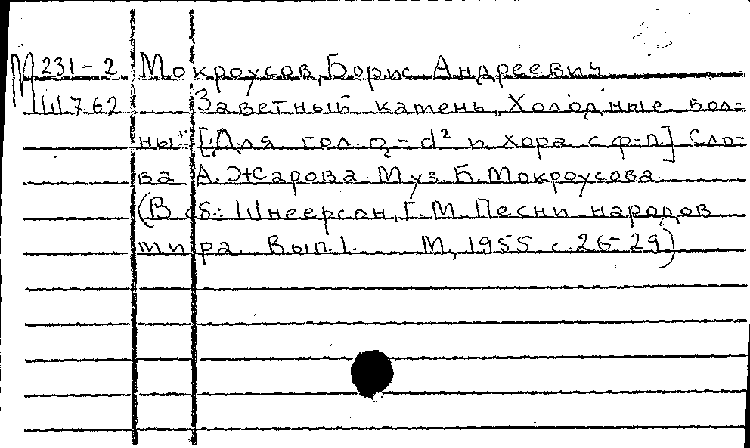 М 231-2 Мокроусов, Борис Андреевич
Ш762 Заветный камень, Холодные вол-
ны" [Для гол. a-d² и хора с ф-п] Сло-
ва А. Жарова. Муз. Б. Мокроусова
(В сб: Шнеерсон, Г. М. Песни народов
мира. Вып. 1. М., 1955 с. 26-29)